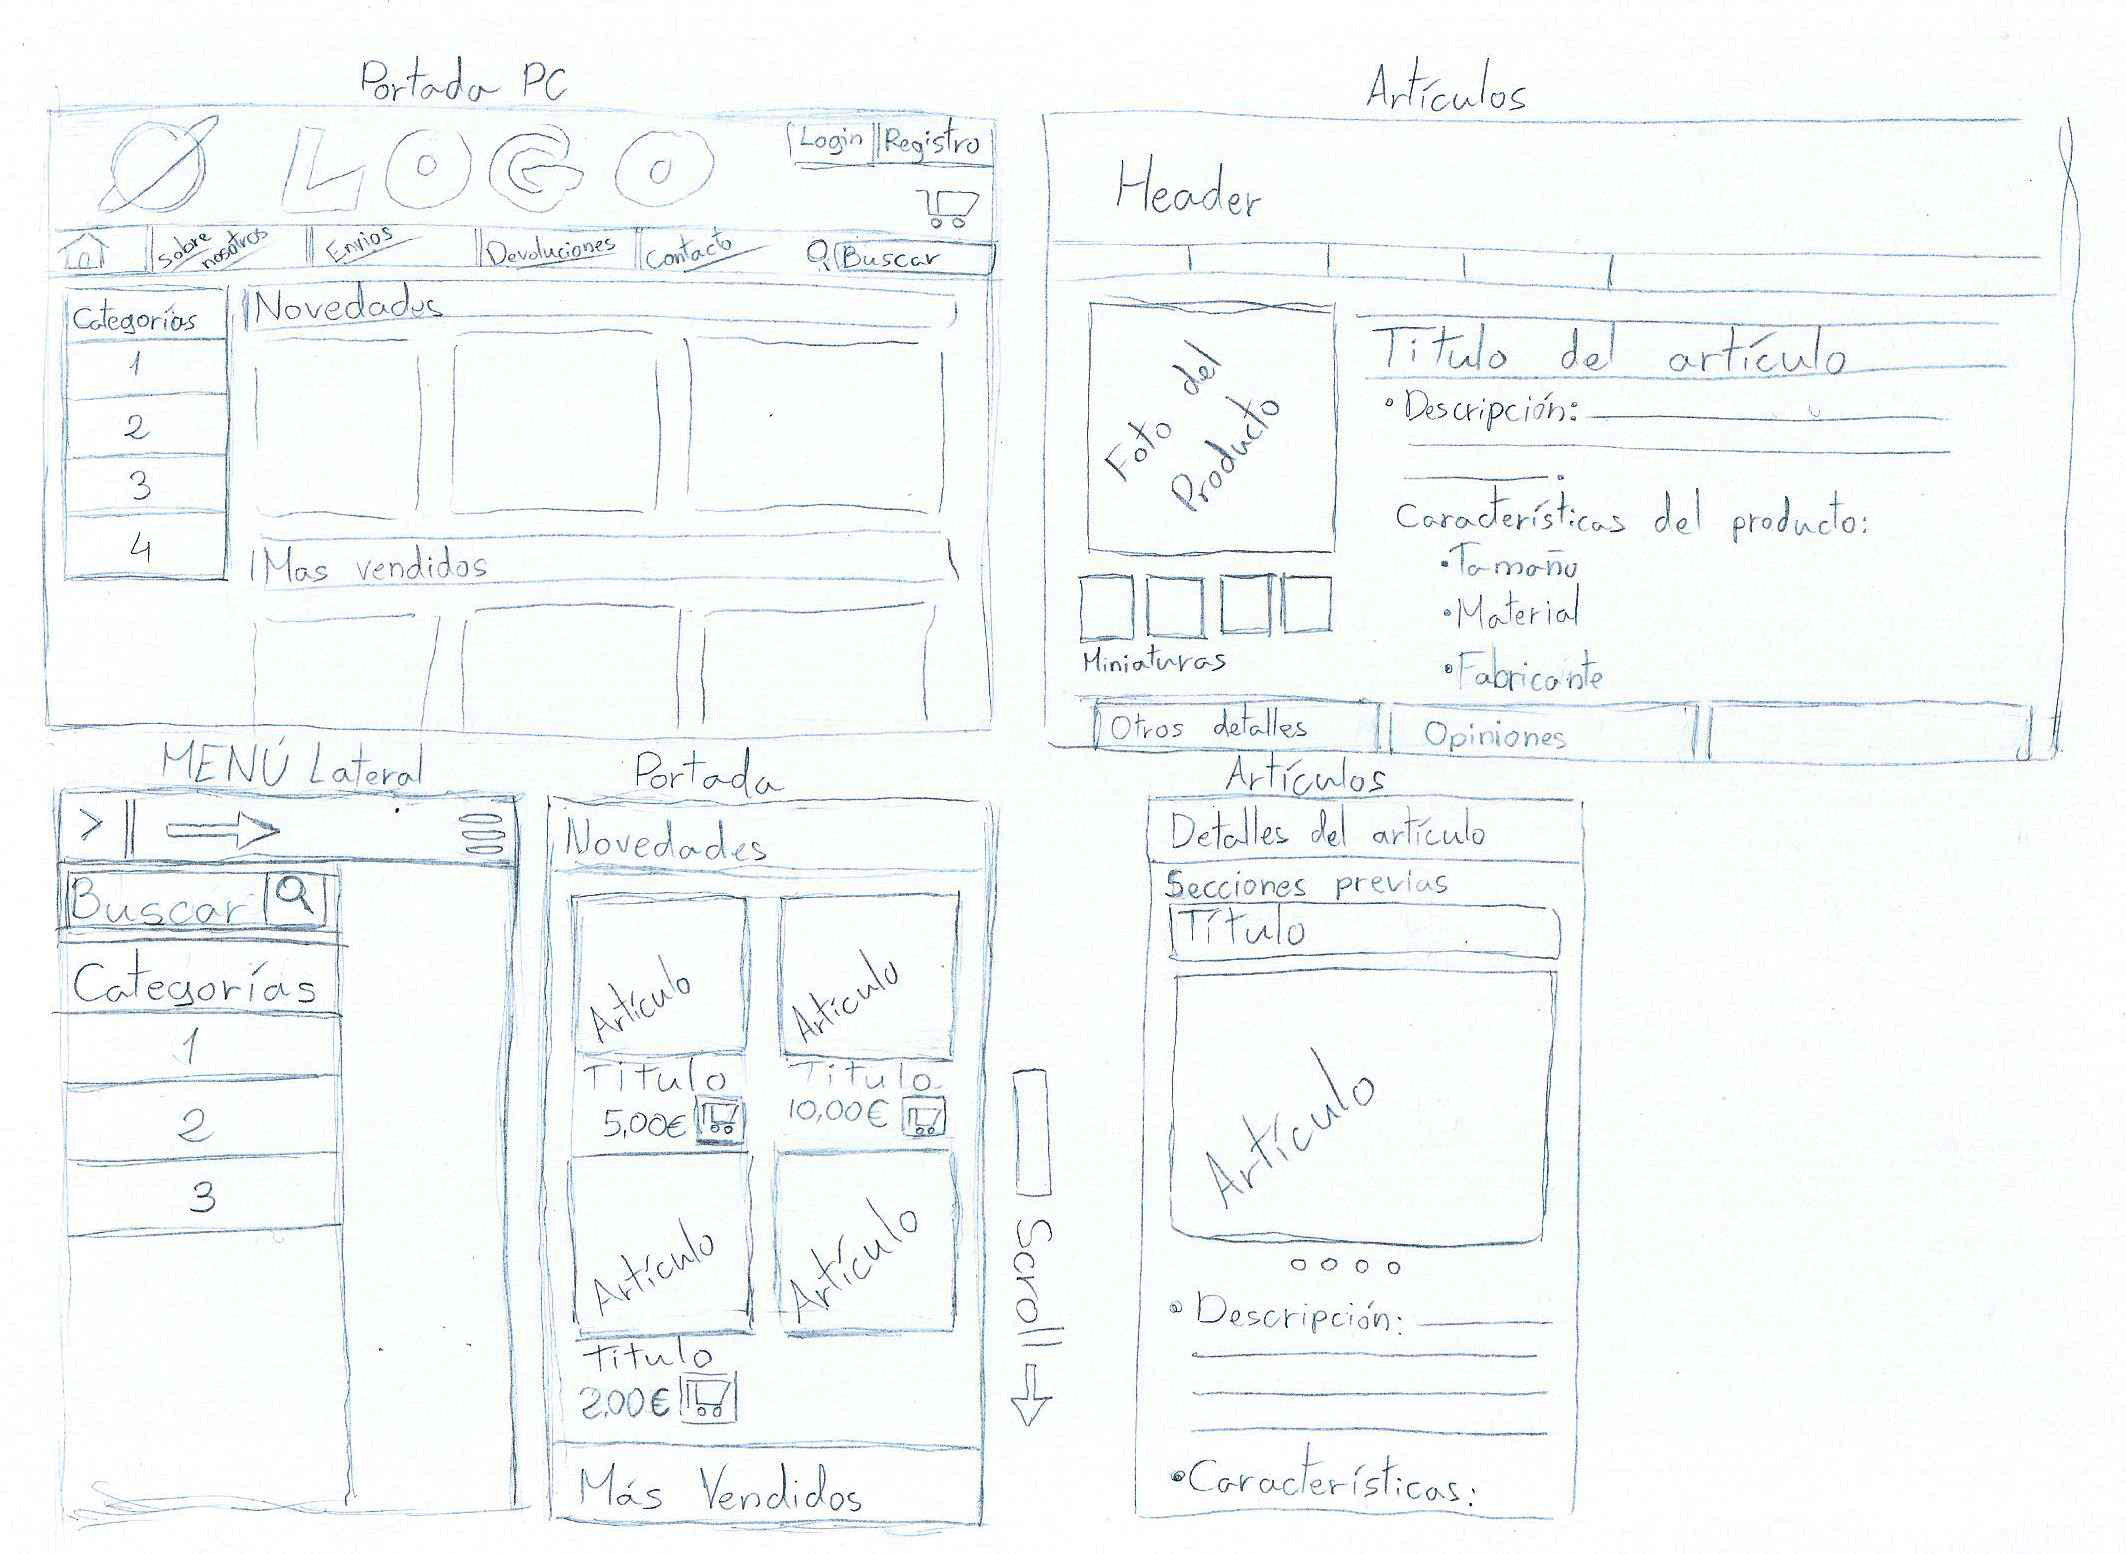 Portada PC
LOGO
Login Registro
Sobre nosotros
Envios
Devoluciones
Contacto
Buscar
Categorías
1
2
3
4
Novedades
Mas vendidos
Artículos
Header
Foto del
Producto
Miniaturas
Titulo del artículo
•Descripción:
Características del producto:
•Tamaño
•Material
•Fabricante
Otros detalles
Opiniones
MENÚ Lateral
>
Buscar
Categorías
1
2
3
Portada
Novedades
Artículo
Artículo
Titulo
Titulo
5,00€
10,00€
Artículo
Artículo
Titulo
2,00€
Más Vendidos
Scroll
Artículos
Detalles del artículo
Secciones previas
Título
Artículo
•Descripción:
•Características: